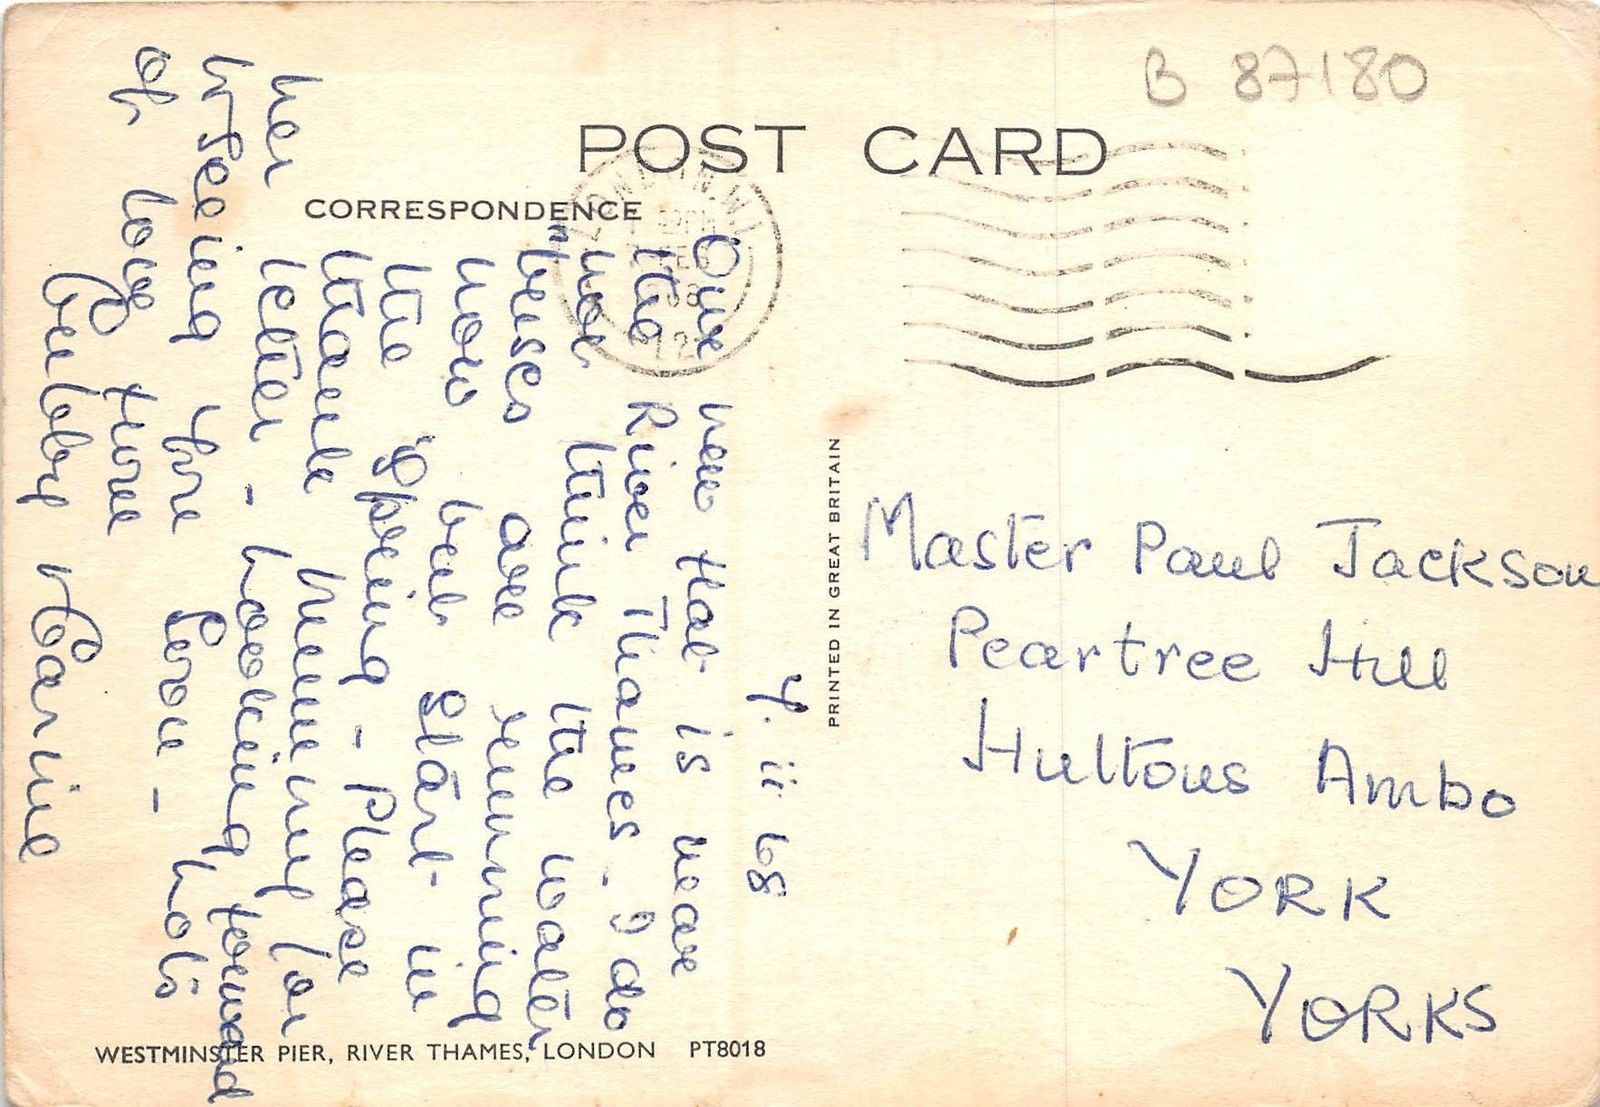 B 87180
POST CARD
CORRESPONDENCE
LONDON N.W.1
FEB
1968
7. ii 68
Our new flat is near
the River Thames. I do
not think the water
buses are running
now but start in
the Spring - Please
thank Mummy for
her letter - looking forward
to seeing you soon - lots
of love from
Auntie
PRINTED IN GREAT BRITAIN
Master Paul Jackson
Peartree Hill
Huttons Ambo
YORK
YORKS
WESTMINSTER PIER, RIVER THAMES, LONDON PT8018